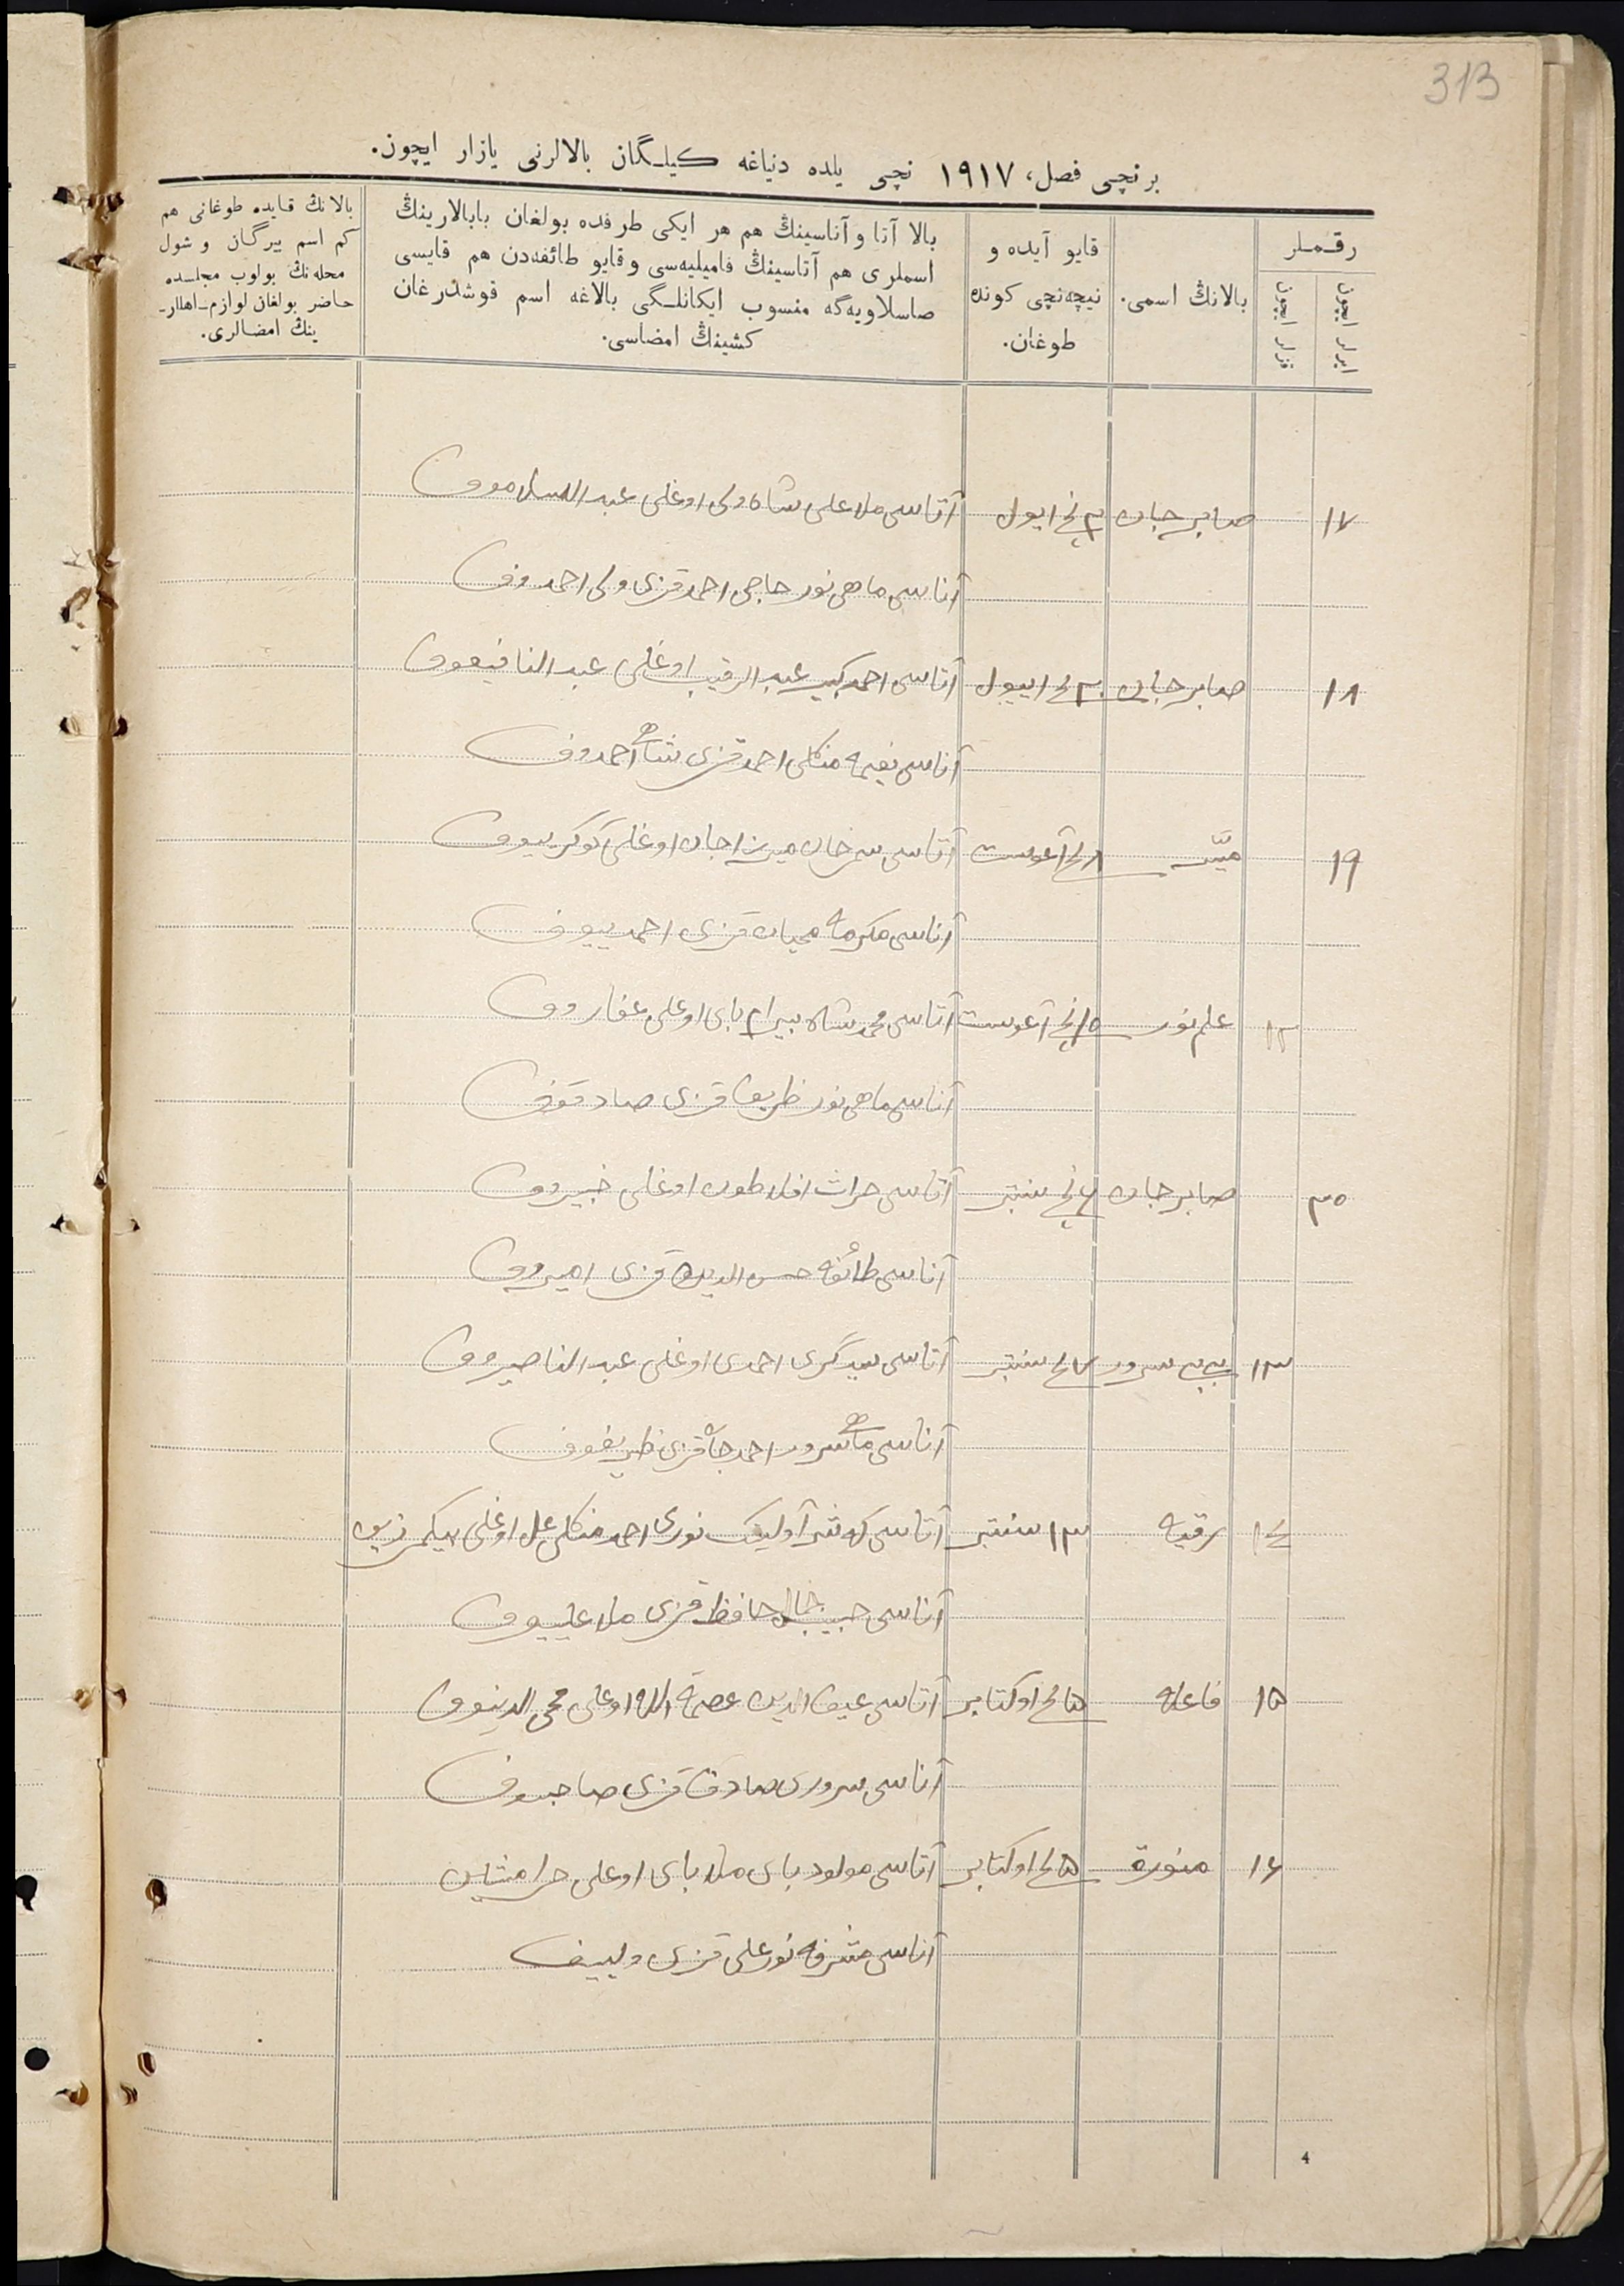 313
برنچی فصل، ١٩١٧ نچی یلده دنیاغه کیلـگان بالالرنی یازار ایچون.
رقـملر
ایرلر ایچون
قزلر ایچون
بالانڭ اسمی.
قایو آیده و نیچه‌نچی کونده طوغان.
بالا آتا و آناسینڭ هم هر ایکی طرفده بولغان بابالارینڭ
اسملری هم آتاسینڭ فامیلیه‌سی و قایو طائفه‌دن هم قایسی
صاسلاویه‌گه منسوب ایکانلـگی بالاغه اسم قوشدرغان
کشینڭ امضاسی.
بالانڭ قایده طوغانی هم
کم اسم بیرگان و شول
محله‌نڭ بولوب مجلـسده
حاضر بولغان لوازم‌ـاهاار‌ـ
ینڭ امضالری.
١٧ صابرجان ٣ نچی ایول آتاسی ملا علی شاه ولی اوغلی عبدالسلاموف
آناسی ماهی نور حاجی احمد قزی ولی احمدوف
١٨ صابرجان اییول آتاسی احمدکبیر عبدالرقیب اوغلی عبدالنافیعوف
آناسی نعیمه منکلی احمد قزی شاه احمدوف
١٩ میّت ٨ نچی آغوست آتاسی سرخان میرزاجان اوغلی
آناسی مکرمه قزی احمدییوف
١٢ علم نور ١٥ نچی آغوست آتاسی محمدشاه بیرام بای اوغلی غفاروف
آناسی ماهی نور ظریف قزی صادقوف
٢٠ صابرجان ٤ نچی سنتبر آتاسی حراث افلاطون اوغلی خبیروف
آناسی طائفه حسن الدین قزی امیروف
١٣ بی بی سرور ٧ نچی سنتبر آتاسی سیدگری احمدی اوغلی عبدالناصیروف
آناسی ماه سرور احمدجان قزی ظریفوف
١٤ رقیه ١٣ سنتبر آتاسی نوری احمد منکلی علی اوغلی
آناسی حبیب جمال حافظ قزی ملا علییوف
١٥ فاعله ٥ نچی اوکتابر آتاسی عین الدین عصمة الله اوغلی محی الدینوف
آناسی سروری صادق قزی صاحبوف
١٦ منورة ٥ نچی اوکتابر آتاسی مولود بای ملا بای اوغلی
آناسی مشرفه نورعلی قزی ولییف
4